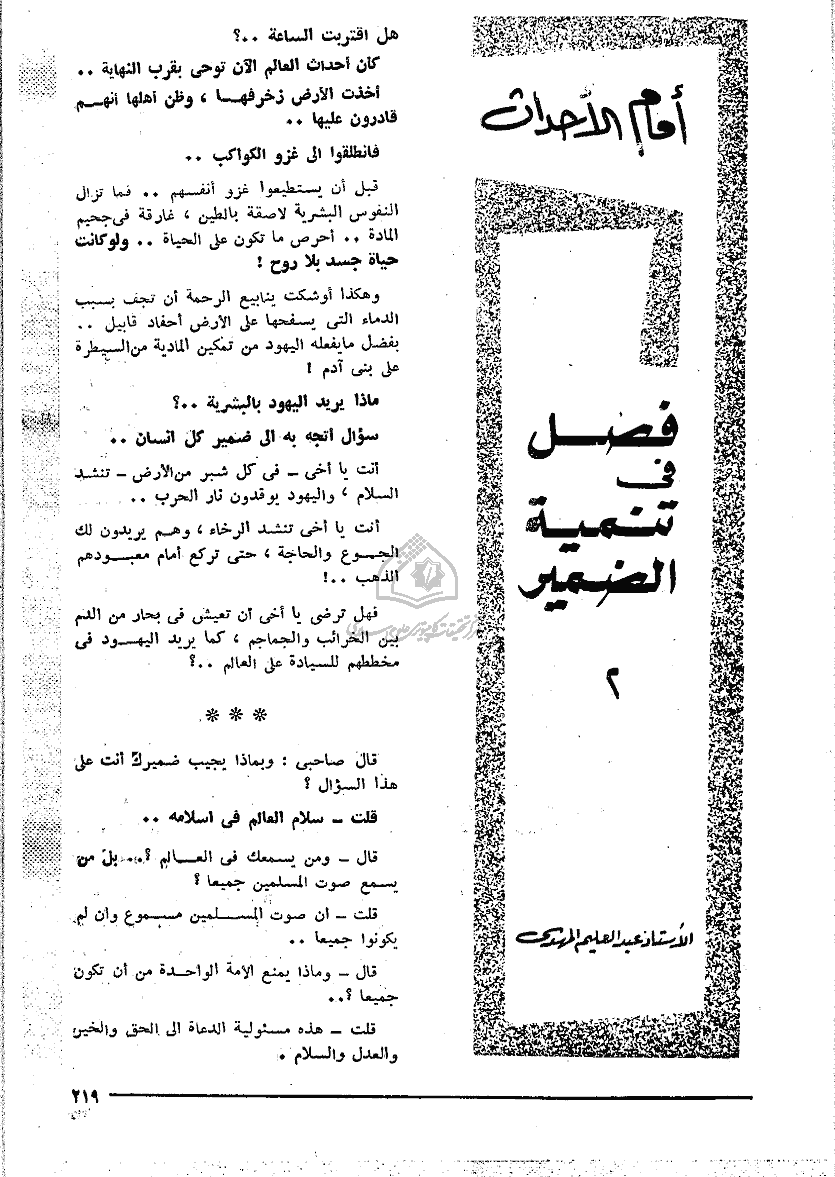 أمام الأحداث
فصل
فى
تنمية
الضمير
٢
الأستاذ عبد العليم المهدى
هل اقتربت الساعة ..؟
كان أحداث العالم الآن توحى بقرب النهاية ..
أخذت الأرض زخرفهــا ، وظن أهلها أنهــم
قادرون عليها ..
فانطلقوا الى غزو الكواكب ..
قبل أن يستطيعوا غزو أنفسهم .. فما تزال
النفوس البشرية لاصقة بالطين ، غارقة فى جحيم
المادة .. أحرص ما تكون على الحياة .. ولو كانت
حياة جسد بلا روح !
وهكذا أوشكت ينابيع الرحمة أن تجف بسبب
الدماء التى يسفحها على الأرض أحفاد قابيل ..
بفضل مايفعله اليهود من تمكين المادية من السيطرة
على بنى آدم !
ماذا يريد اليهود بالبشرية ..؟
سؤال أتجه به الى ضمير كل انسان ..
أنت يا أخى ــ فى كل شبر من الأرض ــ تنشد
السلام ، واليهود يوقدون نار الحرب ..
أنت يا أخى تنشد الرخاء ، وهــم يريدون لك
الجــوع والحاجة ، حتى تركع أمام معبــودهم
الذهب ..!
فهل ترضى يا أخى أن تعيش فى بحار من الدم
بين الخرائب والجماجم ، كما يريد اليهــود فى
مخططهم للسيادة على العالم ..؟
* * *
قال صاحبى : وبماذا يجيب ضميرك أنت على
هذا السؤال ؟
قلت ــ سلام العالم فى اسلامه ..
قال ــ ومن يسمعك فى العــالم ؟.. بل من
يسمع صوت المسلمين جميعا ؟
قلت ــ ان صوت المســلمين مسموع وان لم
يكونوا جميعا ..
قال ــ وماذا يمنع الأمة الواحدة من أن تكون
جميعا ؟..
قلت ــ هذه مسئولية الدعاة الى الحق والخير
والعدل والسلام .
٢١٩